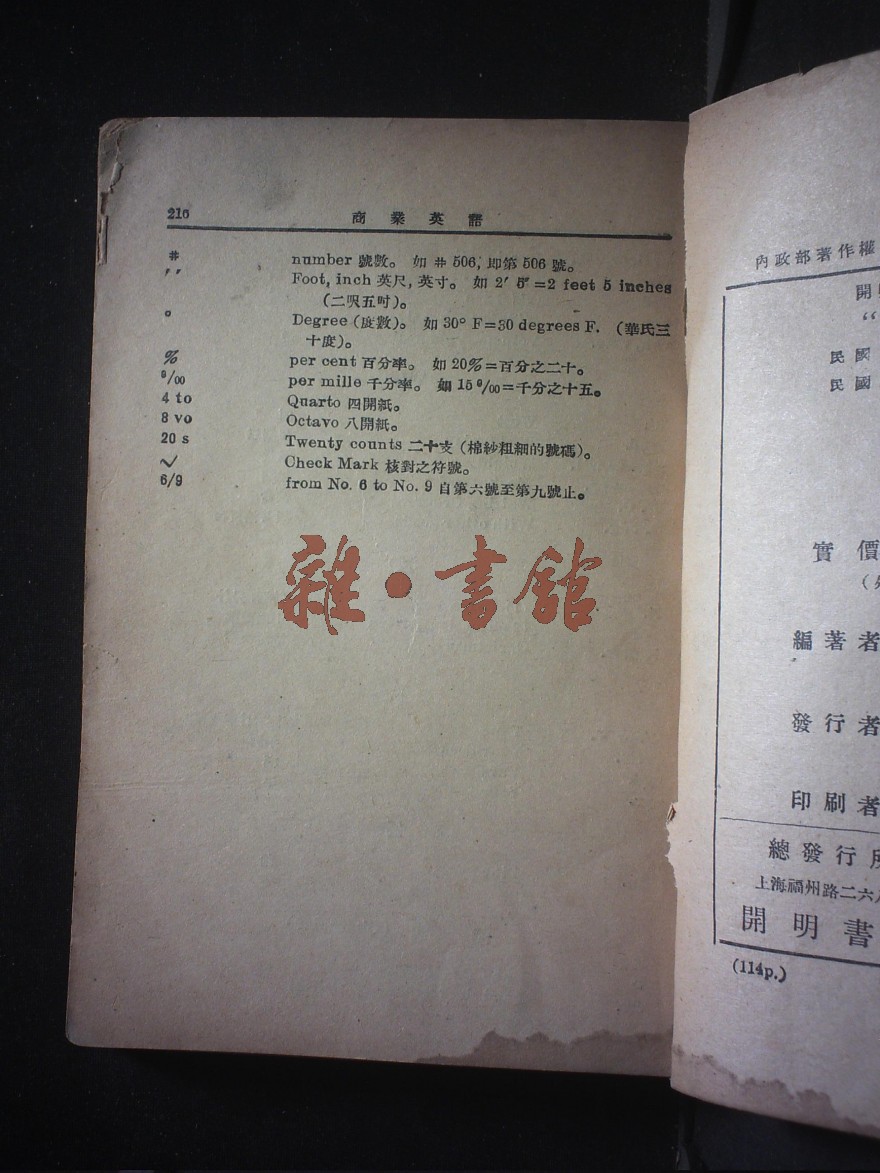 216
商業英語
# number 號數。 如 # 506, 即第 506 號。
′ ″ Foot, inch 英尺, 英寸。 如 2′ 5″=2 feet 5 inches
(二呎五吋)。
° Degree (度數)。 如 30° F=30 degrees F. (華氏三
十度)。
% per cent 百分率。 如 20%=百分之二十。
⁰/₀₀ per mille 千分率。 如 15 ⁰/₀₀=千分之十五。
4 to Quarto 四開紙。
8 vo Octavo 八開紙。
20 s Twenty counts 二十支 (棉紗粗細的號碼)。
✓ Check Mark 核對之符號。
6/9 from No. 6 to No. 9 自第六號至第九號止。
雜·書館
內政部著作權
開
“
民國
民國
實價
編著者
發行者
印刷者
總發行所
上海福州路二六八
開明書
(114p.)